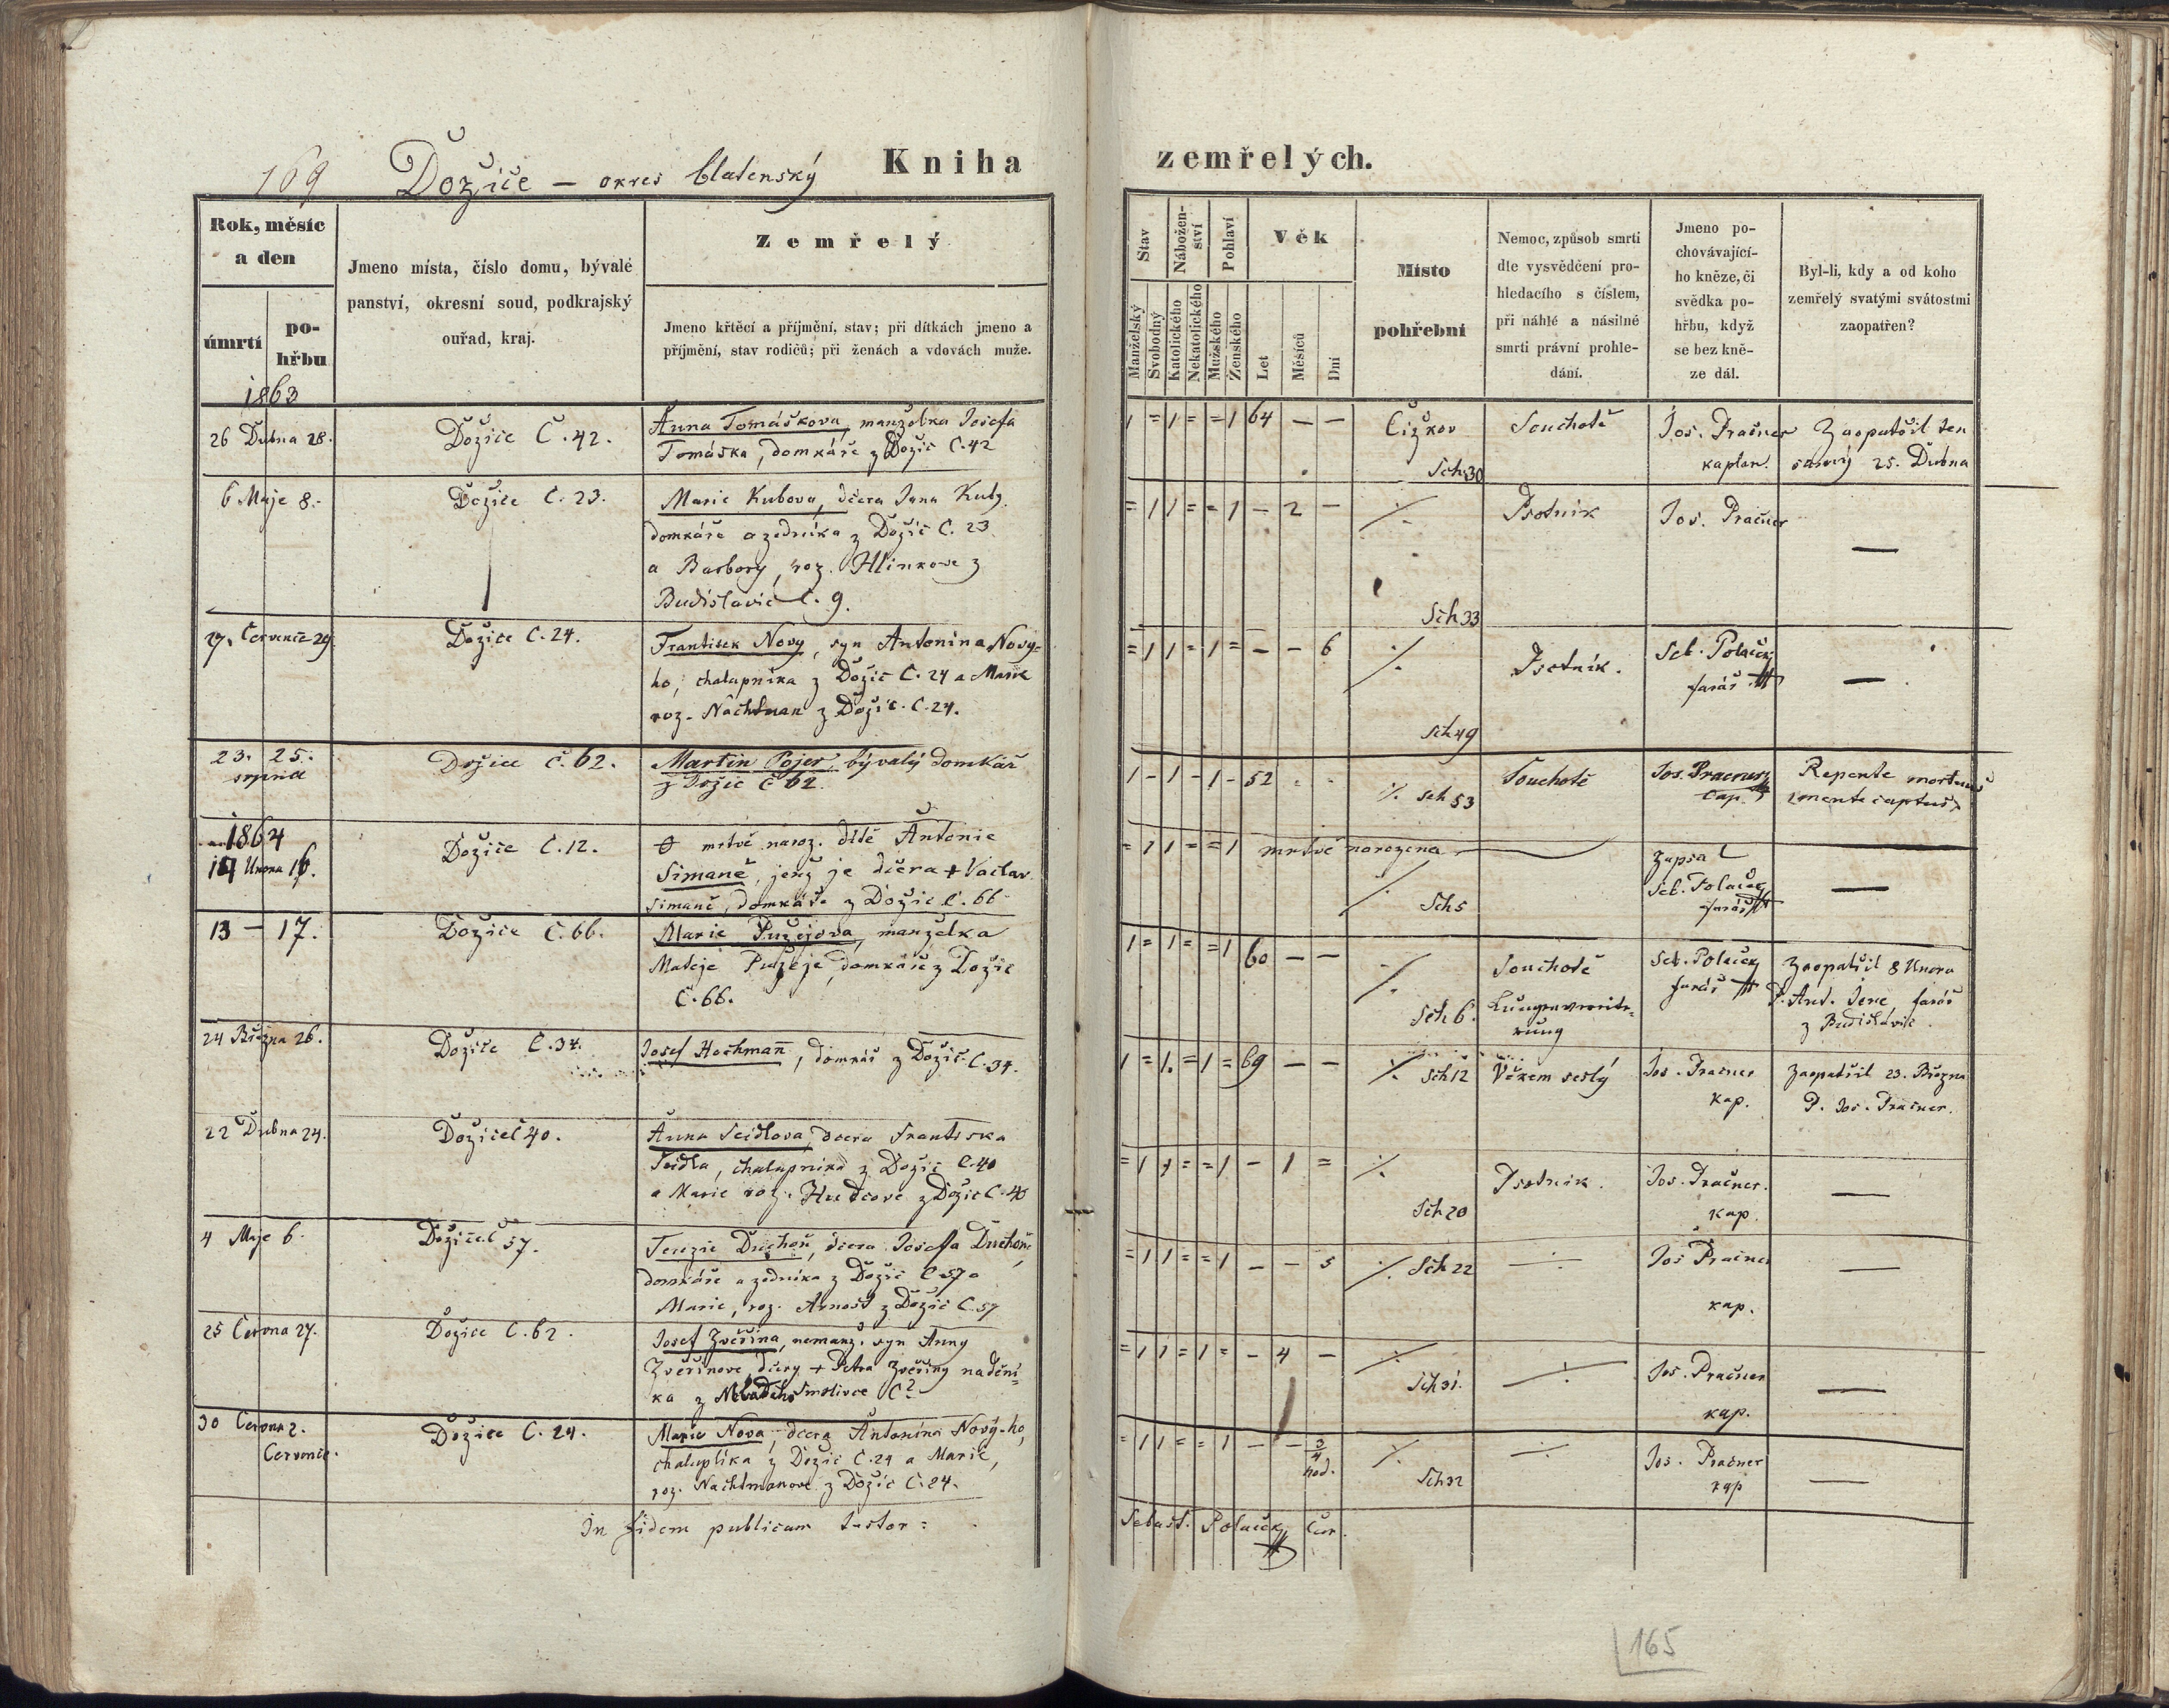 169 Dožice — okres blatenský Kniha zemřelých.
Rok, měsíc a den
úmrtí
po-
hřbu
Jmeno místa, číslo domu, bývalé
panství, okresní soud, podkrajský
ouřad, kraj.
Zemřelý
Jmeno křtěcí a příjmění, stav; při dítkách jmeno a
příjmění, stav rodičů; při ženách a vdovách muže.
Stav
Nábožen-
ství
Pohlaví
Věk
Manželský
Svobodný
Katolického
Nekatolického
Mužského
Ženského
Let
Měsíců
Dní
Místo
pohřební
Nemoc, způsob smrti
dle vysvědčení pro-
hledacího s číslem,
při náhlé a násilné
smrti právní prohle-
dání.
Jmeno po-
chovávající-
ho kněze, či
svědka po-
hřbu, když
se bez kně-
ze dál.
Byl-li, kdy a od koho
zemřelý svatými svátostmi
zaopatřen?
1863
26 Dubna 28.
Dožice Č. 42.
Anna Tomáškova, manželka Josefa
Tomáška, domkáře z Dožic Č. 42
1 = 1 = = 1 64 — —
Čižkov
Sch 30
Souchotě
Jos. Pračner
kaplan.
Zaopatřil ten
samý 25. Dubna
6 Maje 8.
Dožice Č. 23.
Marie Kubova, dcera Jana Kuby
domkáře a zedníka z Dožic Č. 23
a Barbory, roz. Hlinkove z
Budislavic č. 9.
= 1 1 = = 1 — 2 —
Sch 33
Psotník
Jos. Pračner
—
27. Července 29.
Dožice Č. 24.
Frantisek Novy, syn Antonina Nový-
ho, chalupníka z Dožic Č. 24 a Marie
roz. Nachtman z Dožic. Č. 24.
= 1 1 = 1 = — — 6
Sch 49
Psotník.
Seb. Polaček
farář
—
23. 25.
srpna
Dožice č. 62.
Martin Pojer, bývalý domkář
z Dožic č 62.
1 - 1 - 1 - 52
Sch 53
Souchotě
Jos. Pračner
cap.
Repente mortuus
(mente captus)
1864
14 Unora 16.
Dožice Č. 12.
mrtvě naroz. dítě Antonie
Simaně, jenž je dcera + Vaclav
Simaně, domkáře z Dožic č. 66
= 1 1 = = 1 mrtvě narozena
Sch 5
Zapsal
Seb. Polaček
farář
—
13 — 17.
Dožice Č. 66.
Marie Pužejova, manželka
Matěje Pužeje, domkáře z Dožic
Č. 66.
1 = 1 = = 1 60 — —
Sch 6.
Souchotě
Seb. Polaček
farář
Zaopatřil 8 Unora
P. Ant. farář
z Budislavic
24 Března 26.
Dožice Č. 34.
Josef Hochman̄, domkář z Dožic Č. 34.
1 = 1. = 1 = 69 — —
Sch 12
Věkem sešlý
Jos. Pračner
kap.
Zaopatřil 23. Března
P. Jos. Pračner.
22 Dubna 24.
Dožice Č 40.
Anna Seidlova, dcera Frantiska
Seidla, chalupníka z Dožic Č. 40
a Marie roz. Hudcove z Dožic Č. 40
= 1 1 = = 1 — 1 =
Sch 20
Psotnik.
Jos. Pračner.
kap.
—
4 Maje 6.
Dožice Č 57.
Terezie Duchoň, dcera Josefa Duchoň,
domkáře a zedníka z Dožic Č 57 a
Marie, roz. Arnošt z Dožic Č. 57
= 1 1 = = 1 — — 5
Sch 22
Jos Pračner
kap.
—
25 Června 27.
Dožice Č. 62.
Josef Zvěřina, nemanž. syn Anny
Zvěřinove, dcery + Petra Zvěřiny nadení-
ka z Mladého Smolivce Č?
= 1 1 = 1 = — 4 —
Sch 31.
Jos. Pračner
kap.
—
30 Června 2.
Července.
Dožice Č. 24.
Marie Nova, dcera Antonína Nový-ho,
chalupníka z Dožic Č. 24 a Marie,
roz. Nachtmanove z Dožic Č. 24.
= 1 1 = = 1 — — 3/4
hod.
Sch 32
Jos. Pračner
kap
—
In fidem publicam testor:
Sebast. Polaček, Cur.
165